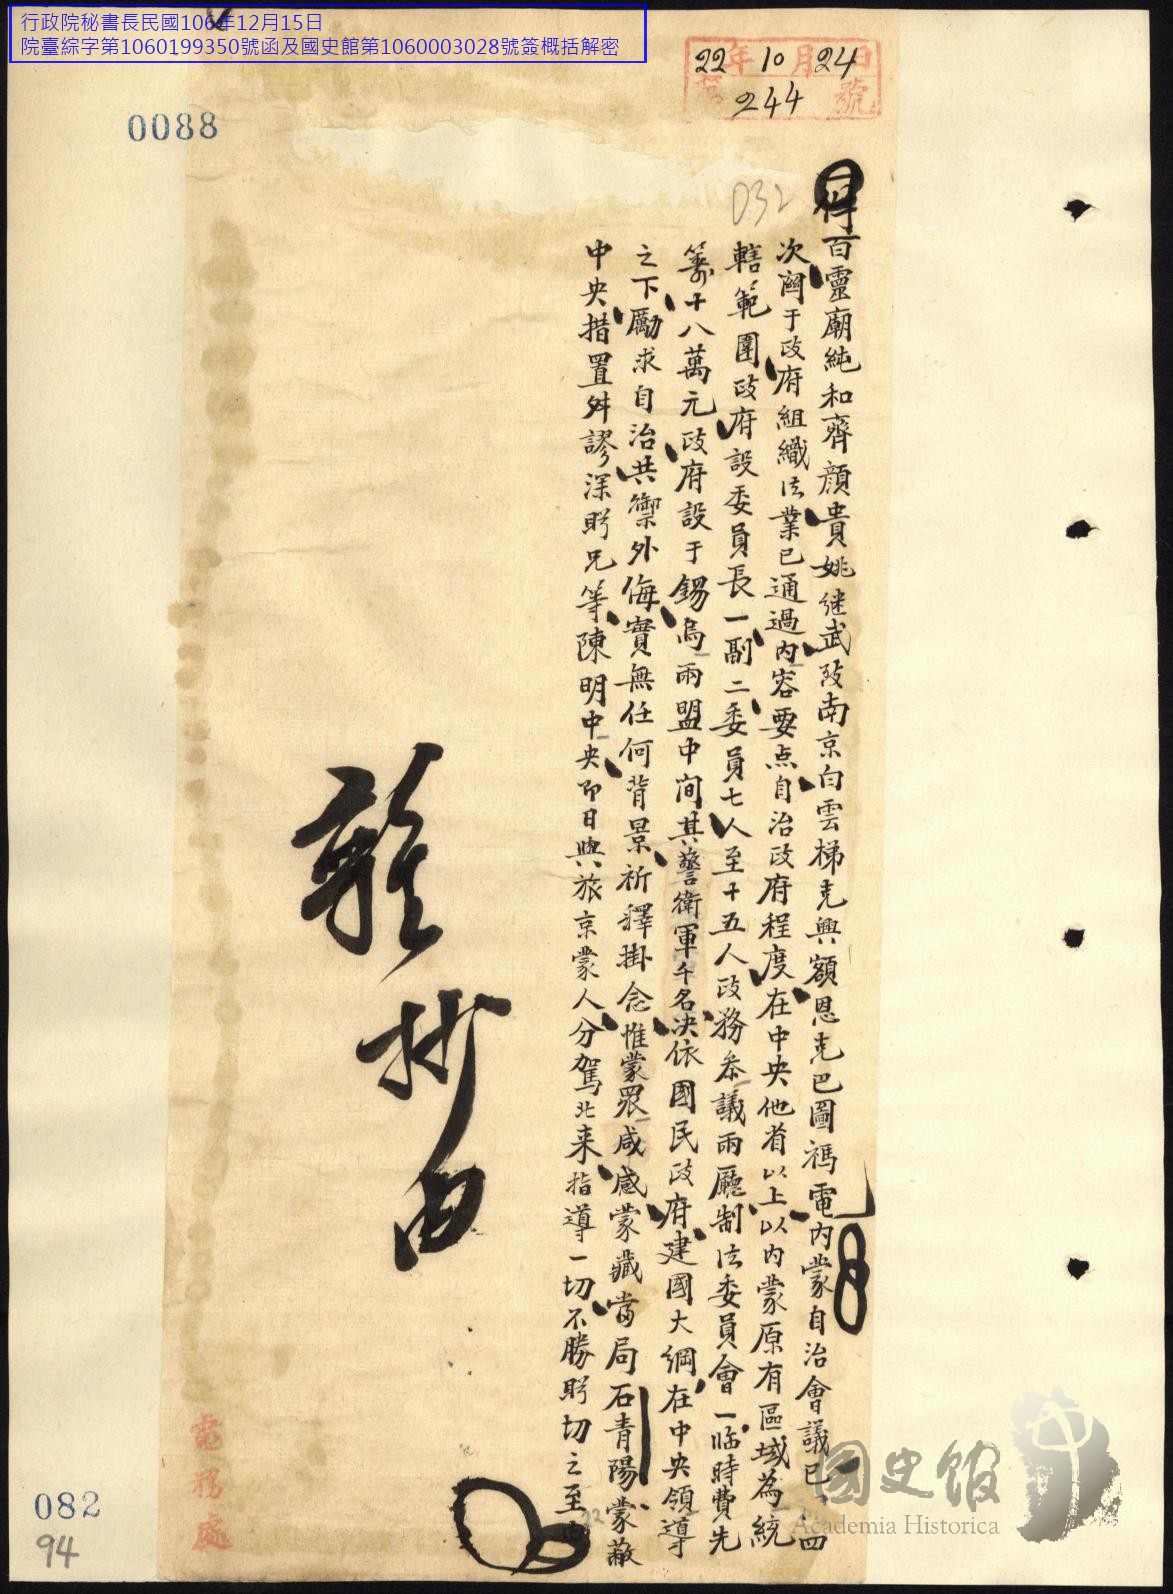 行政院秘書長民國106年12月15日
院臺綜字第1060199350號函及國史館第1060003028號簽概括解密
22年10月24日
244號
0088
032
百靈廟純和齊顏貴姚繼武致南京白雲梯克興額恩克巴圖禡電內蒙自治會議已四
次關于政府組織法業已通過內容要点自治政府程度在中央他省以上以內蒙原有區域為統
轄範圍政府設委員長一副二委員七人至十五人政務叅議兩廳制法委員會一臨時費先
籌十八萬元政府設于錫烏兩盟中间其警衛軍千名決依國民政府建國大綱在中央領導
之下勵求自治共禦外侮實無任何背景祈釋掛念惟蒙眾咸感蒙藏當局石青陽蒙蔽
中央措置舛謬深盼兄等陳明中央即日與旅京蒙人分駕北來指導一切不勝盼切之至
抄
電務處
082
94
國史館
Academia Historica